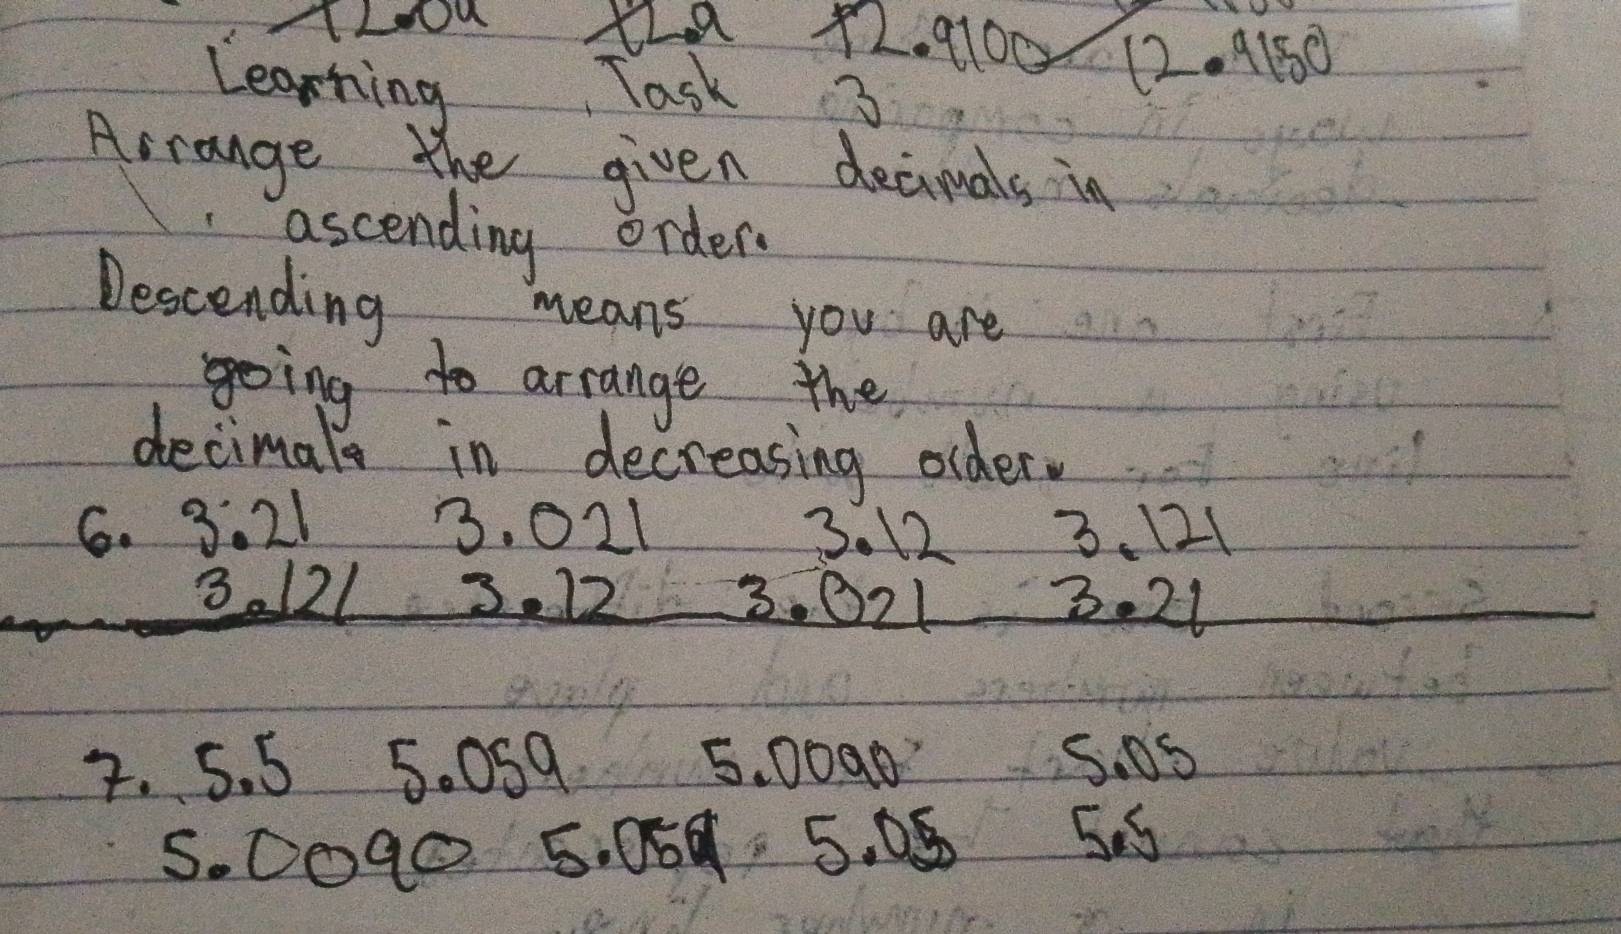 12.9100 12.9150
Learning Task 3
Arrange the given decimals in
ascending order.
Descending means you are
going to arrange the
decimals in decreasing order.
6. 3.21 3.021 3.12 3.121
3.121 3.12 3.021 3.21
7. 5.5 5.059 5.0090 5.05
5.0090 5.059 5.05 5.5